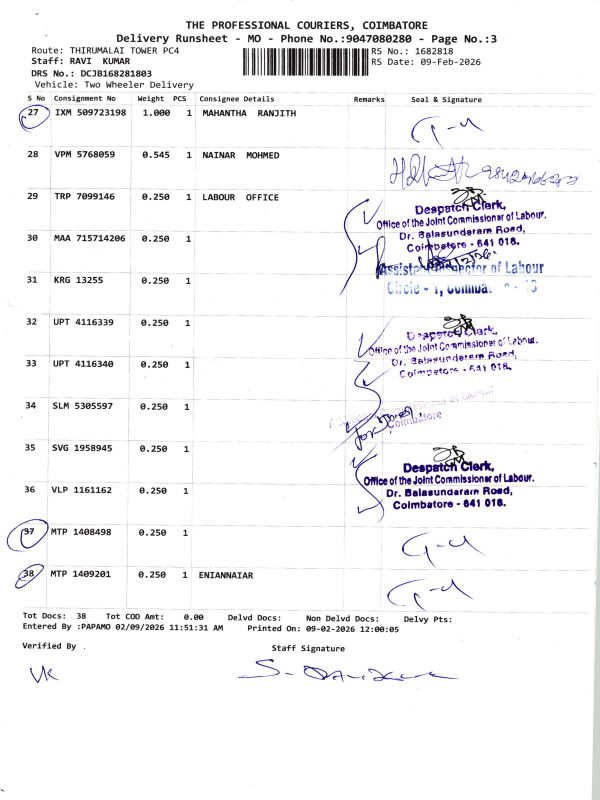 THE PROFESSIONAL COURIERS, COIMBATORE
Delivery Runsheet - MO - Phone No.:9047080280 - Page No.:3
Route: THIRUMALAI TOWER PC4
RS No.: 1682818
Staff: RAVI KUMAR
RS Date: 09-Feb-2026
DRS No.: DCJB168281803
Vehicle: Two Wheeler Delivery
S No Consignment No Weight PCS Consignee Details Remarks Seal & Signature
27 IXM 509723198 1.000 1 MAHANTHA RANJITH
28 VPM 5768059 0.545 1 NAINAR MOHMED
29 TRP 7099146 0.250 1 LABOUR OFFICE
Despatch Clerk,
Office of the Joint Commissioner of Labour.
Dr. Balasundaram Road,
Coimbatore - 641 018.
30 MAA 715714206 0.250 1
Inspector of Labour
31 KRG 13255 0.250 1
Circle - 1,
32 UPT 4116339 0.250 1
Despatch Clerk,
Office of the Joint Commissioner of Labour.
Dr. Balasundaram Road,
Coimbatore - 641 018.
33 UPT 4116340 0.250 1
34 SLM 5305597 0.250 1
of Labour
Coimbatore
35 SVG 1958945 0.250 1
Despatch Clerk,
Office of the Joint Commissioner of Labour.
Dr. Balasundaram Road,
Coimbatore - 641 018.
36 VLP 1161162 0.250 1
37 MTP 1408498 0.250 1
38 MTP 1409201 0.250 1 ENIANNAIAR
Tot Docs: 38 Tot COD Amt: 0.00 Delvd Docs: Non Delvd Docs: Delvy Pts:
Entered By :PAPAMO 02/09/2026 11:51:31 AM Printed On: 09-02-2026 12:00:05
Verified By .
Staff Signature
VK